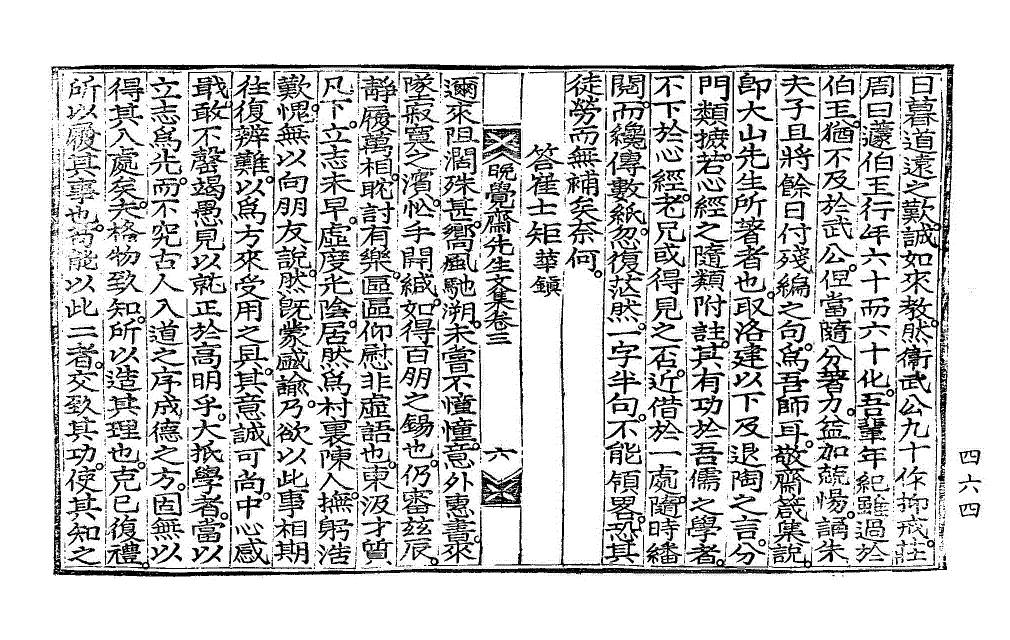 日暮道遠之歎。誠如來敎。然衛武公九十作抑戒。莊
周曰蘧伯玉行年六十而六十化。吾輩年紀雖過於
伯玉。猶不及於武公。但當隨分著力。益加兢惕。誦朱
夫子且將餘日付殘編之句。爲吾師耳。敬齋箴集說。
卽大山先生所著者也。取洛建以下及退陶之言。分
門類摭。若心經之隨類附註。其有功於吾儒之學者。
不下於心經。老兄或得見之否。近借於一處。隨時繙
閱。而纔傳數紙。忽復茫然。一字半句。不能領畧。恐其
徒勞而無補矣。奈何。
答崔士矩 華鎭
晩覺齋先生文集卷三
六
邇來阻濶殊甚。嚮風馳溯。未嘗不憧憧。意外惠書。來
墜寂寞之濱。忙手開緘。如得百朋之錫也。仍審玆辰。
靜履萬相。耽討有樂。區區仰慰非虛語也。東汲才質
凡下。立志未早。虛度光陰。居然爲村裏陳人。撫躬浩
歎。愧無以向朋友說。然旣蒙盛諭。乃欲以此事相期
往復辨難。以爲方來受用之具。其意誠可尙。中心感
戢。敢不罄竭愚見以就正於高明乎。大抵學者。當以
立志爲先。而不究古人入道之序成德之方。固無以
得其入處矣。夫格物致知。所以造其理也。克己復禮。
所以履其事也。苟能以此二者。交致其功。使其知之
四六四